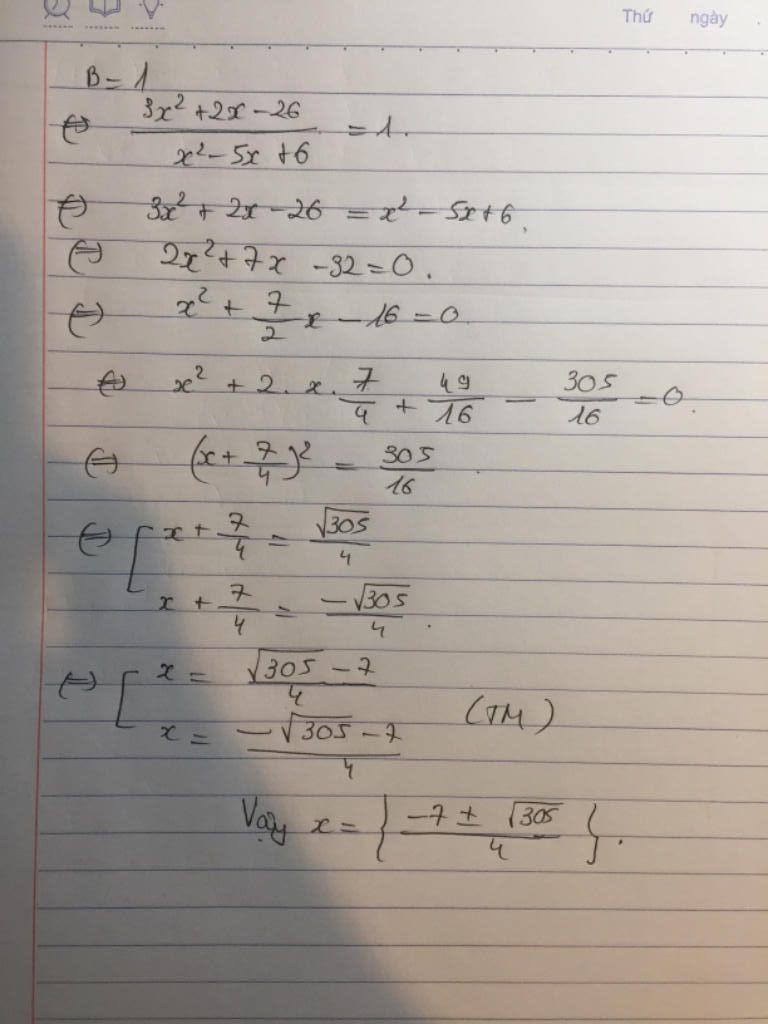 Thứ ngày .
B = 1
⇔ (3x² + 2x - 26)/(x² - 5x + 6) = 1.
⇔ 3x² + 2x - 26 = x² - 5x + 6.
⇔ 2x² + 7x - 32 = 0.
⇔ x² + 7/2 x - 16 = 0
⇔ x² + 2. x. 7/4 + 49/16 - 305/16 = 0.
⇔ (x + 7/4)² = 305/16.
⇔ [ x + 7/4 = √305/4
x + 7/4 = -√305/4.
⇔ [ x = (√305 - 7)/4
x = (-√305 - 7)/4 (TM)
Vậy x = { (-7 ± √305)/4 }.